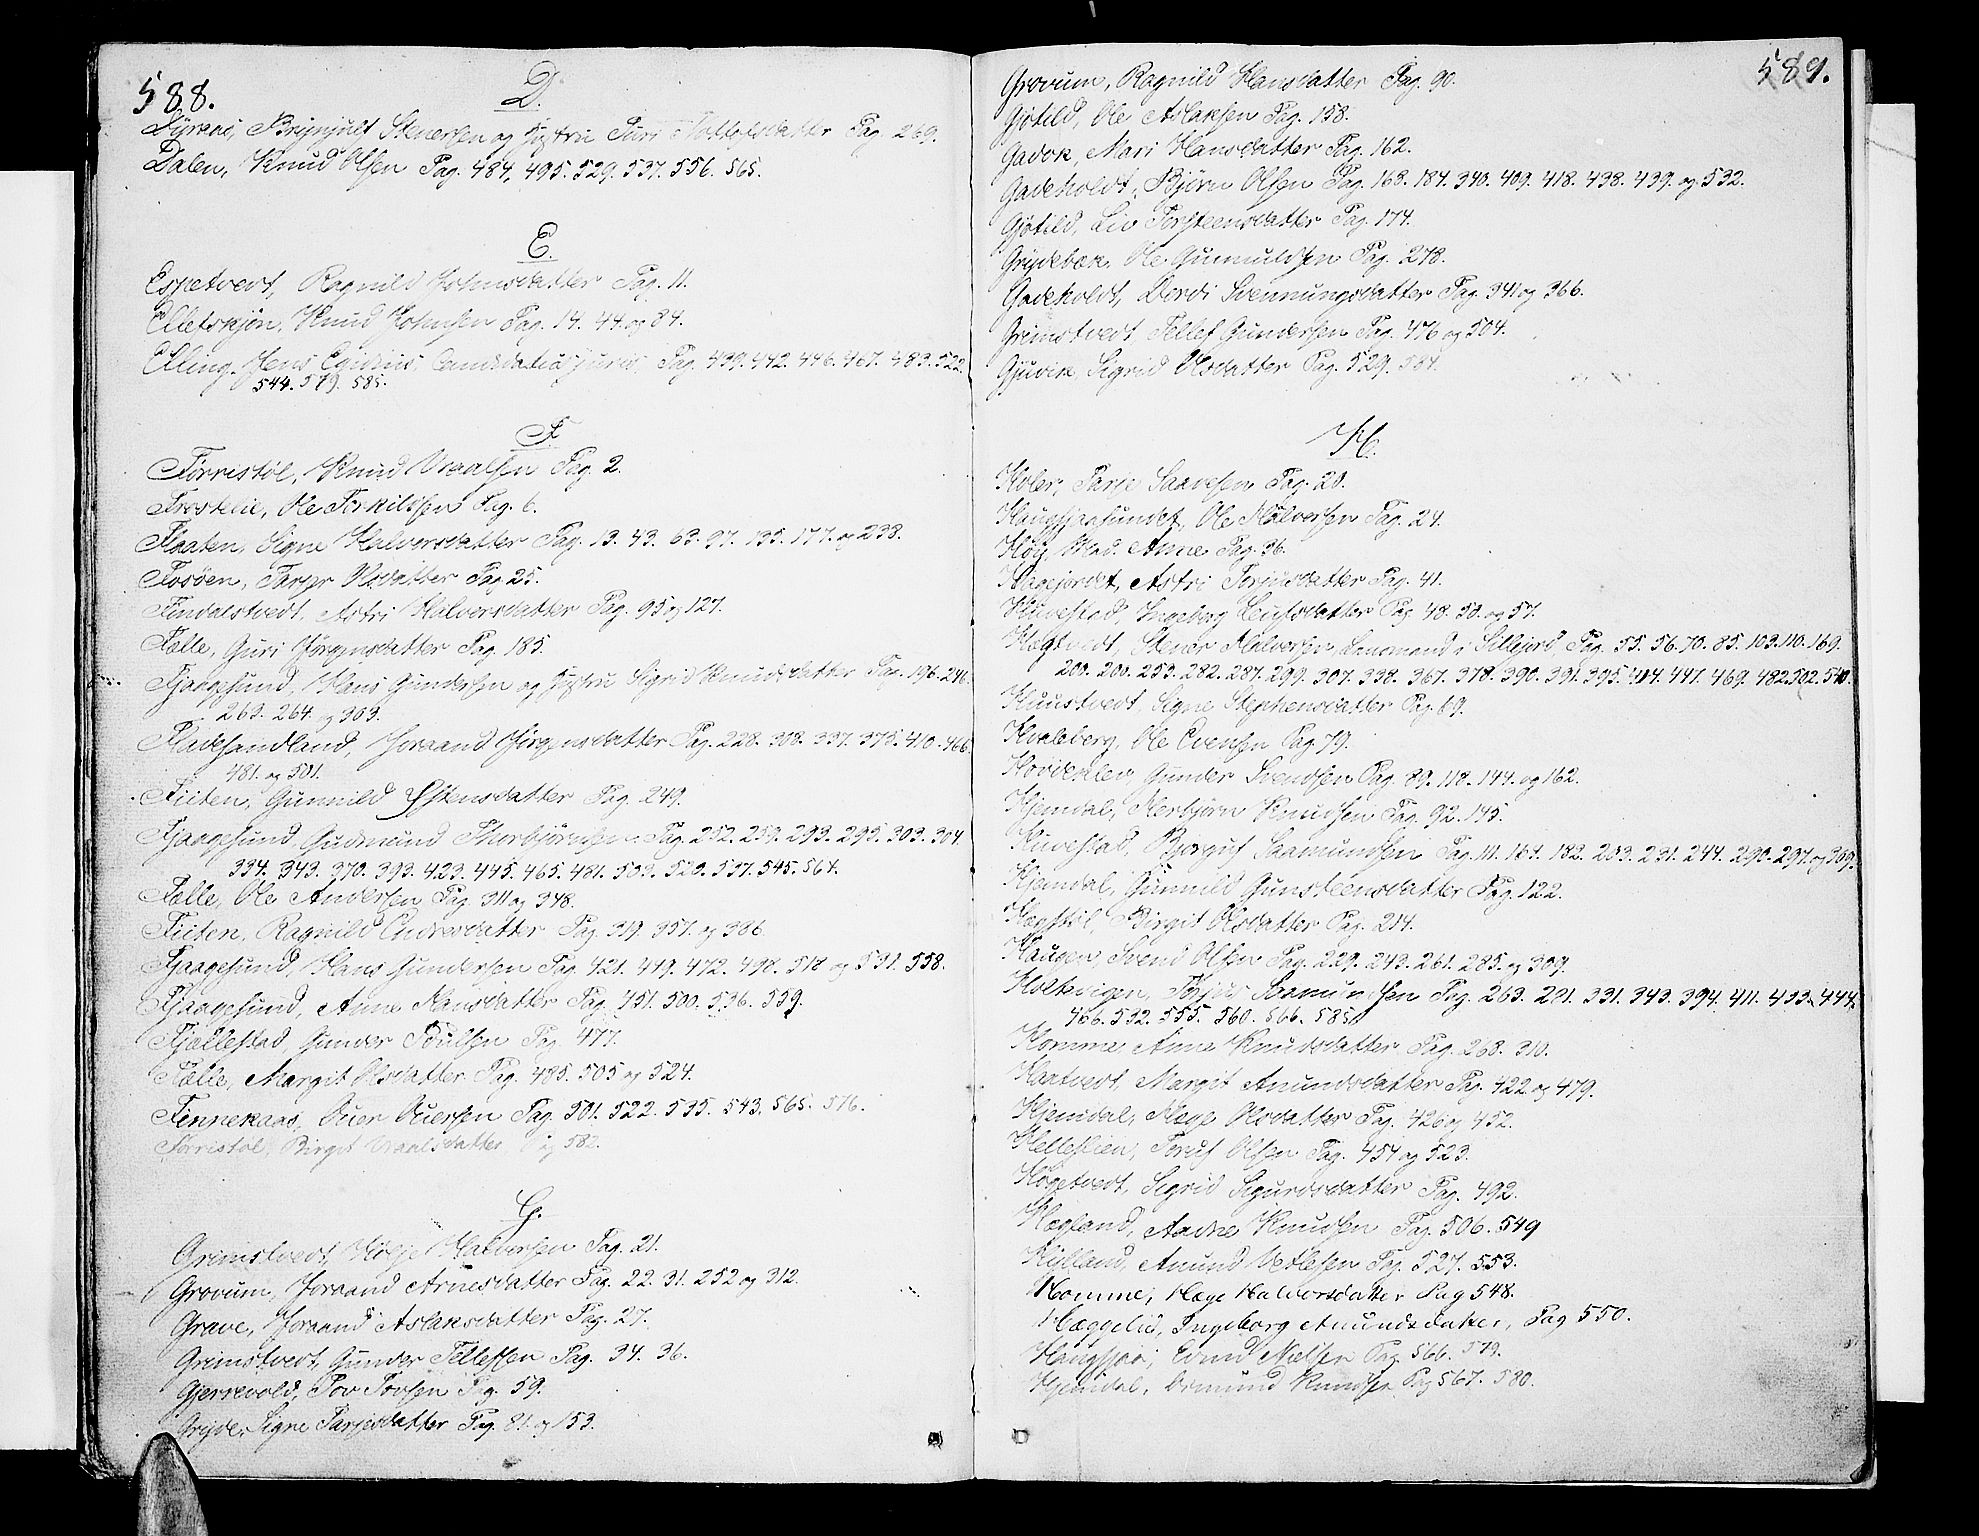 588.
D.
Dÿraas, Brÿnjulf Stenersen og Hustru Guri Tollefsdatter Pag. 269.
Dalen, Knud Olsen Pag. 484, 495. 529. 537. 556. 565.
E.
Espetvedt, Ragnild Johnsdatter Pag. 11.
Elletskjön, Knud Johnsen Pag. 14. 44. og 84.
Elling, Jens Egidius, Candidatus juris, Pag. 439. 442. 446. 467. 483. 522.
544. 579. 585.
F.
Förristöl, Knud Vraalsen Pag. 2.
Froskelie, Ole Torkildsen Pag. 6.
Flaaten, Signe Halvorsdatter Pag. 13. 43. 63. 97. 135. 177. og 238.
Fosöen, Targer Olsdatter Pag. 25.
Findalstvedt, Astri Halvorsdatter Pag. 95 og 127.
Fælle, Guri Jörgensdatter Pag. 185.
Fjaagesund, Hans Gundersen og Hustru Sigrid Knudsdatter Pag. 196. 246.
263. 264. og 303.
Fladesandland, Joraand Jörgensdatter Pag. 228. 308. 337. 375. 410. 466.
481. og 501.
Fiiten, Gunnild Östensdatter Pag. 249.
Fjaagesund, Gudmund Thorbjörnsen Pag. 252. 259. 293. 295. 303. 304.
334. 343. 370. 393. 423. 445. 465. 481. 503. 520. 537. 545. 564.
Fælle, Ole Andersen Pag. 311 og 348.
Fiiten, Ragnild Endresdatter Pag. 319. 357. og 386.
Fjaagesund, Hans Gundersen Pag. 421. 449. 472. 498. 518 og 531. 558.
Fjaagesund, Anne Hansdatter Pag. 451. 500. 536. 559.
Fjællestad, Gunder Poulsen Pag. 477.
Fælle, Margit Olsdatter Pag. 485. 505 og 524.
Finnekaas, Ouer Ouersen Pag. 501. 522. 535. 543. 565. 576.
Förristöl, Birgit Vraalsdatter, Pag 582.
G.
Grimstvedt, Kölje Halvorsen Pag. 21.
Grovum, Joraand Arnesdatter Pag. 22. 31. 252 og 312.
Grave, Joraand Aslaksdatter Pag. 27.
Grimstvedt, Gunder Tellefsen Pag. 34. 36.
Gjersvold, Tov Tovsen Pag. 59.
Grÿde, Signe Tarjesdatter Pag. 81. og 153.
589.
Grovum, Ragnild Hansdatter Pag. 90.
Gjötild, Ole Aslaksen Pag. 158.
Gavok, Mari Hansdatter Pag. 162.
Gadeholdt, Björn Olsen Pag. 168. 184. 340. 409. 418. 438. 439. og 532.
Gjötild, Liv Torsteensdatter Pag. 174.
Grÿdebæk, Ole Gunnuldsen Pag. 278.
Gadeholdt, Dordi Svennungsdatter Pag. 341 og 366.
Grimstvedt, Tellef Gundersen Pag. 476 og 504.
Gjuvik, Sigrid Olsdatter Pag. 529. 584.
H.
Hvler, Tarje Saavesen Pag. 20.
Haugsjaasundet, Ole Halvorsen Pag. 24.
Höÿ, Mad. Anne Pag. 36.
Hagejordet, Astri Torjusdatter Pag. 41.
Huvestad, Ingeborg Leufsdatter Pag. 48. 50. og 57.
Hægtvedt, Stener Halvorsen, Lensmand i Sillejord Pag. 55. 56. 70. 85. 103. 110. 169.
200. 203. 253. 282. 287. 299. 307. 338. 367. 378. 390. 391. 395. 414. 447. 469. 482. 502. 540.
Huustvedt, Signe Stephensdatter Pag. 69.
Hvaleberg, Ole Evensen Pag. 79.
Hovdekalen, Gunder Svendsen Pag. 89. 118. 144. og 162.
Hjemdal, Herbjörn Knudsen Pag. 92. 145.
Huvestad, Bjorguf Saamundsen Pag. 111. 161. 182. 203. 231. 244. 290. 297. og 309.
Hjemdal, Gunnild Gunsteensdatter Pag. 122.
Hægstöl, Birgit Olsdatter Pag. 214.
Haugen, Svend Olsen Pag. 229. 243. 261. 285. og 309.
Holtevigen, Torjus Saamundsen Pag. 263. 291. 331. 343. 394. 411. 433. 444.
466. 532. 555. 560. 566. 585.
Homme, Anne Knudsdatter Pag. 268. 310.
Haatvedt, Margit Anundsdatter Pag. 422 og 479.
Hjemdal, Hæge Olsdatter Pag. 426 og 452.
Helleslien, Toruf Olsen Pag. 454 og 523.
Högetvedt, Sigrid Sigurdsdatter Pag. 492.
Hægland, Aadne Knudsen Pag. 506. 549
Hÿlland, Anund Vetlesen Pag. 527. 553.
Homme, Hæge Halvorsdatter Pag 548.
Hæggelid, Ingeborg Amundsdatter, Pag 550.
Haugsjaa, Edvind Nielsen Pag 566. 579.
Hjemdal, Osmund Knudsen, Pag 567. 580.